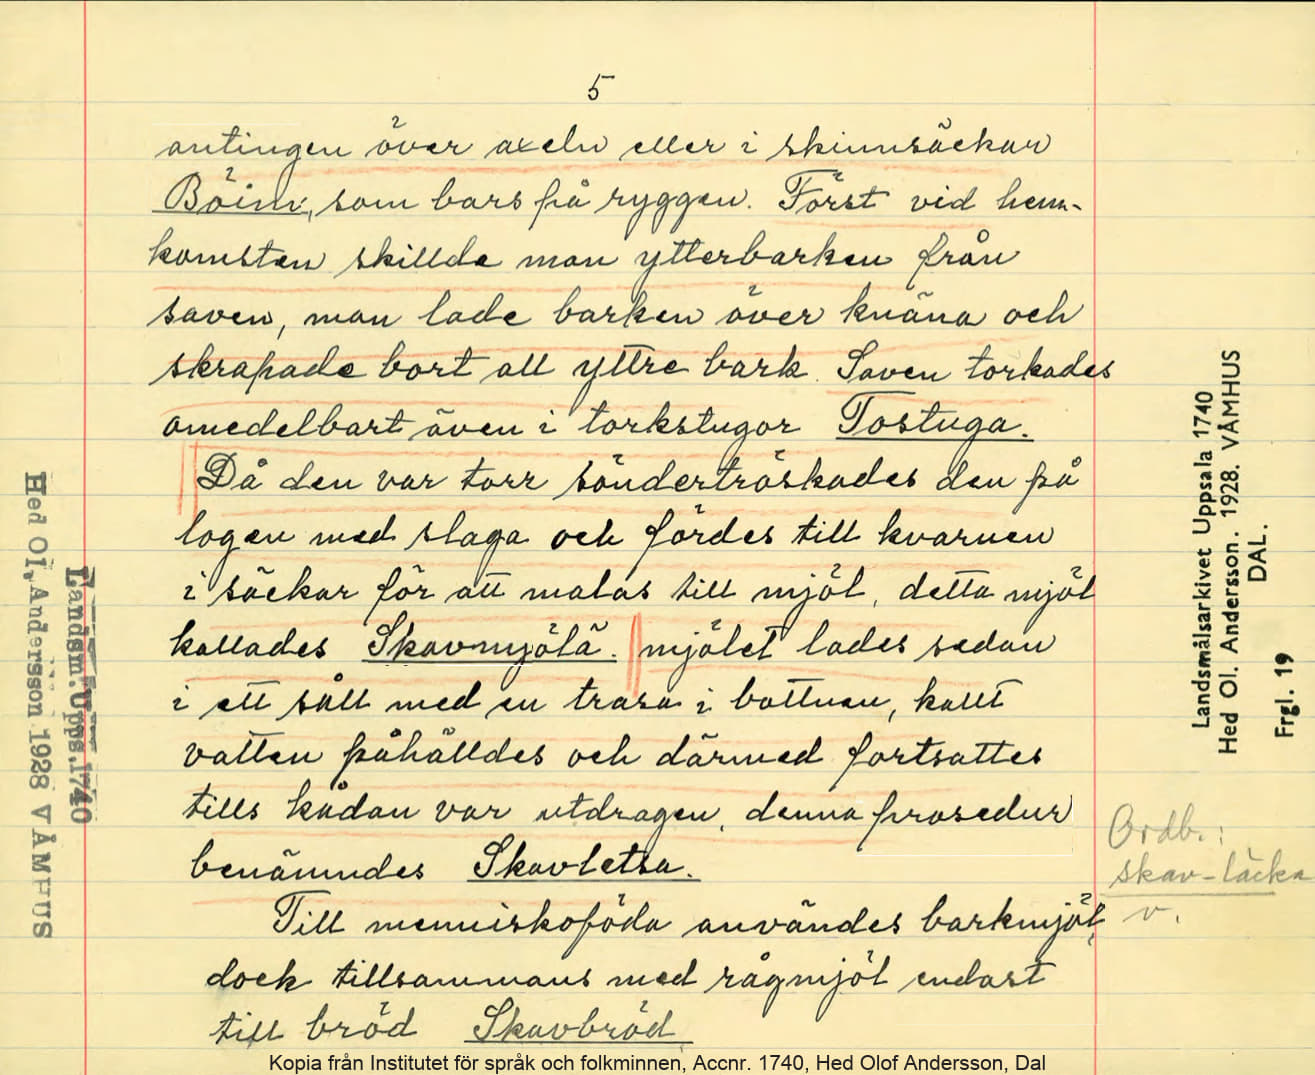 5
antingen över axeln eller i skinnsäckar
Böim, som bars på ryggen. Först vid hem-
komsten skillde man ytterbarken från
saven, man lade barken över knäna och
skrapade bort all yttre bark. Saven torkades
omedelbart även i torkstugor Tostuga.
Då den var torr sönderträskades den på
logen med slaga och fördes till kvarnen
i säckar för att malas till mjöl, detta mjöl
kallades Skavmjölä. mjölet lades sedan
i ett såll med en trasa i bottnen, kallt
vatten påhälldes och därmed fortsattes
tills kådan var utdragen, denna prosedur
benämndes Skavletsa.
Till menniskoföda användes barkmjöl,
dock tillsammans med rågmjöl endast
till bröd Skavbröd.
Landsm. Upps. 1740
Hed Ol. Andersson 1928 VÅMHUS
Landsmålsarkivet Uppsala 1740
Hed Ol. Andersson. 1928. VÅMHUS
DAL.
Frgl. 19
Ordb.:
skav-läcka
v.
Kopia från Institutet för språk och folkminnen, Accnr. 1740, Hed Olof Andersson, Dal